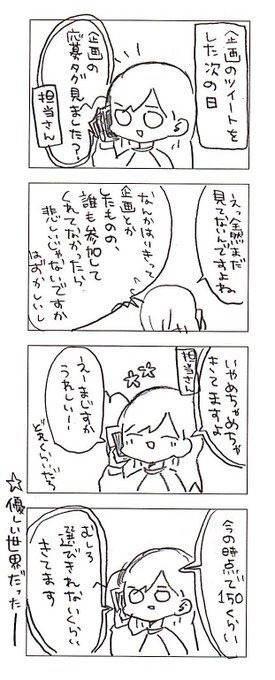 企画のツイートを
した次の日
企画の
応募タグ見ました？
担当さん
えっ全然まだ
見てないんですよね
なんかはりきって
企画とか
したものの、
誰も参加して
くれてなかったら
悲しいじゃないですか
はずかしいし
いやめちゃめちゃ
きてますよ
担当さん
えーまじですか
うれしいー！
どれくらいだろ
今の時点で150くらい
むしろ
選びきれないくらい
きてます
☆優しい世界だったー